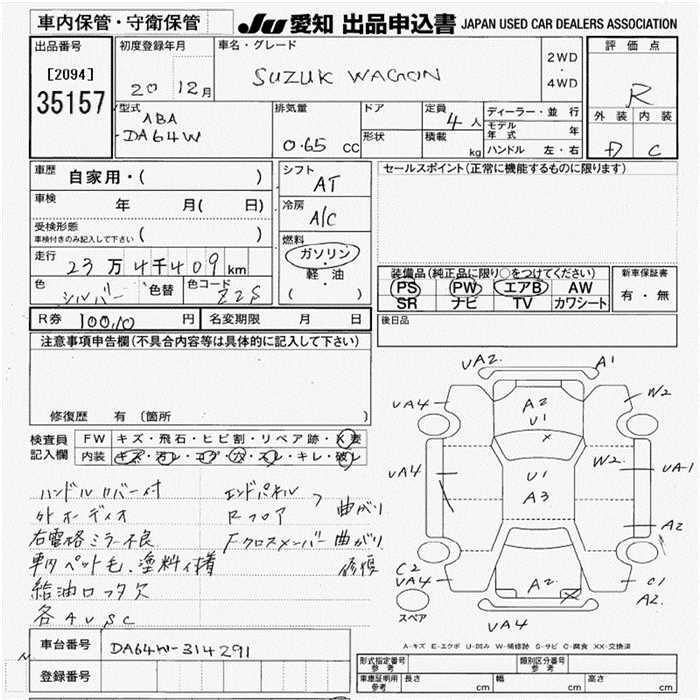 車内保管・守衛保管
JU 愛知 出品申込書 JAPAN USED CAR DEALERS ASSOCIATION
出品番号
[2094]
35157
初度登録年月
20 12月
車名・グレード
SUZUK WAGON
2WD
・
4WD
評価点
R
外装 内装
D C
型式
ABA
-DA64W
排気量
0.65 cc
ドア
形状
定員 4人
積載 kg
ディーラー・並行
モデル年式 年
ハンドル 左・右
車歴 自家用・( )
車検 年 月( 日)
受検形態
車検付きのみ記入して下さい ( )
走行 23万4千409km
色 シルバー 色替 色コード Z2S
シフト
AT
冷房
A/C
燃料
ガソリン・
軽・油
( )
セールスポイント(正常に機能するものに限ります)
装備品(純正品に限り○をつけてください)
PS PW エアB AW
SR ナビ TV カワシート
新車保証書
有・無
R券 100,10 円 名変期限 月 日
後日品
注意事項申告欄(不具合内容等は具体的に記入して下さい)
修復歴 有 (箇所 )
検査員
記入欄
FW キズ・飛石・ヒビ割・リペア跡・X要
内装 キズ・汚レ・コゲ・穴・スレ・キレ・破レ
ハンドルカバー付
外オーディオ
右電格ミラー不良
車内ペット毛、塗料付着
給油口フタ欠
各AVSC
エンドパネル
Rフロア
曲がり
Fクロスメンバー曲がり
修復
UA2 A1
UA4 W2
A2
U1
UA4 U1 W2 UA1
A3
A2
C2
UA4 A2 C1
A2
スペア
UA4
A-キズ E-エクボ U-凹み W-補修跡 S-サビ C-腐食 XX-交換済
車台番号 DA64W-314291
登録番号
形式指定番号 参考
類別区分番号 参考
車庫証明用 参考 長さ cm 幅 cm 高さ cm